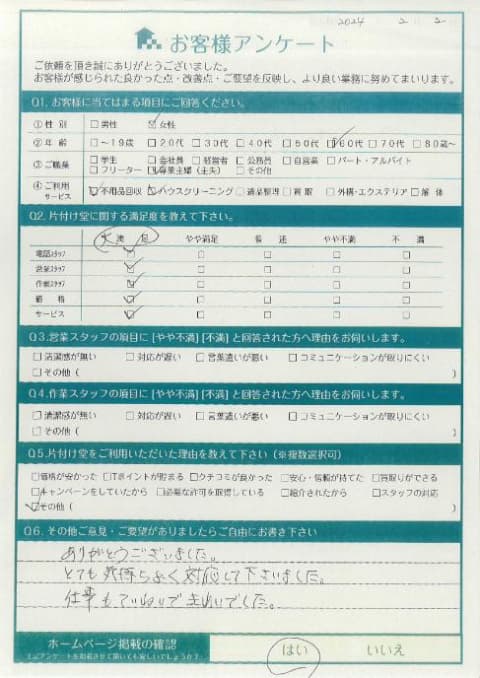 2024 2 2
お客様アンケート
ご依頼を頂き誠にありがとうございました。
お客様が感じられた良かった点・改善点・ご要望を反映し、より良い業務に努めてまいります。
Q1. お客様に当てはまる項目にご回答ください。
①性 別 □男性 ☑女性
②年 齢 □～19歳 □20代 □30代 □40代 □50代 ☑60代 □70代 □80歳～
③ご職業 □学生 □会社員 □経営者 □公務員 □自営業 □パート・アルバイト
□フリーター ☑専業主婦（主夫） □その他
④ご利用サービス ☑不用品回収 ☑ハウスクリーニング □遺品整理 □買取 □外構・エクステリア □解体
Q2. 片付け堂に関する満足度を教えて下さい。
大満足 やや満足 普通 やや不満 不満
電話スタッフ ☑ □ □ □ □
営業スタッフ ☑ □ □ □ □
作業スタッフ ☑ □ □ □ □
価格 ☑ □ □ □ □
サービス ☑ □ □ □ □
Q3. 営業スタッフの項目に [やや不満] [不満] と回答された方へ理由をお伺いします。
□清潔感が無い □対応が遅い □言葉遣いが悪い □コミュニケーションが取りにくい
□その他（ ）
Q4. 作業スタッフの項目に [やや不満] [不満] と回答された方へ理由をお伺いします。
□清潔感が無い □対応が遅い □言葉遣いが悪い □コミュニケーションが取りにくい
□その他（ ）
Q5. 片付け堂をご利用いただいた理由を教えて下さい（※複数選択可）
□価格が安かった □Tポイントが貯まる □クチコミが良かった □安心・信頼が持てた □買取りができる
□キャンペーンをしていたから □必要な許可を取得している □紹介されたから □スタッフの対応
☑その他（ ）
Q6. その他ご意見・ご要望がありましたらご自由にお書き下さい
ありがとうございました。
とても気持ちよく対応して下さいました。
仕事もていねいで きれいでした。
ホームページ掲載の確認 はい いいえ
上記アンケートを掲載させて頂いても宜しいでしょうか？